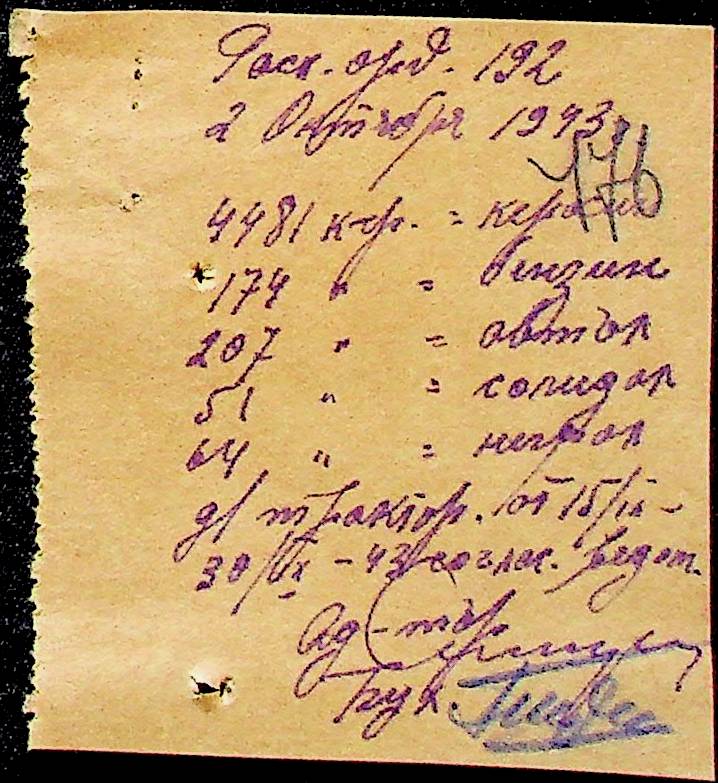 Расх. орд. 192
2 Октября 1943
176
4481 кгр. = керосин
174 " = бензин
207 " = автол
51 " = солидол
64 " = нигрол
д/ трактор. от 15/IX-
30/IX - 43 соглас. ведом.
Бух